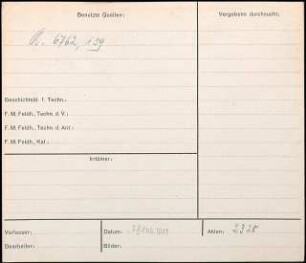 Benutzte Quellen:
Vergebens durchsucht:
6762, 139
Geschichtsbl. f. Techn.:
F. M. Feldh., Techn. d. V.:
F. M. Feldh., Techn. d. Ant.:
F. M. Feldh., Kal.:
Irrtümer:
Verfasser:
Datum:
Akten: 2328
Bearbeiter:
Bilder: